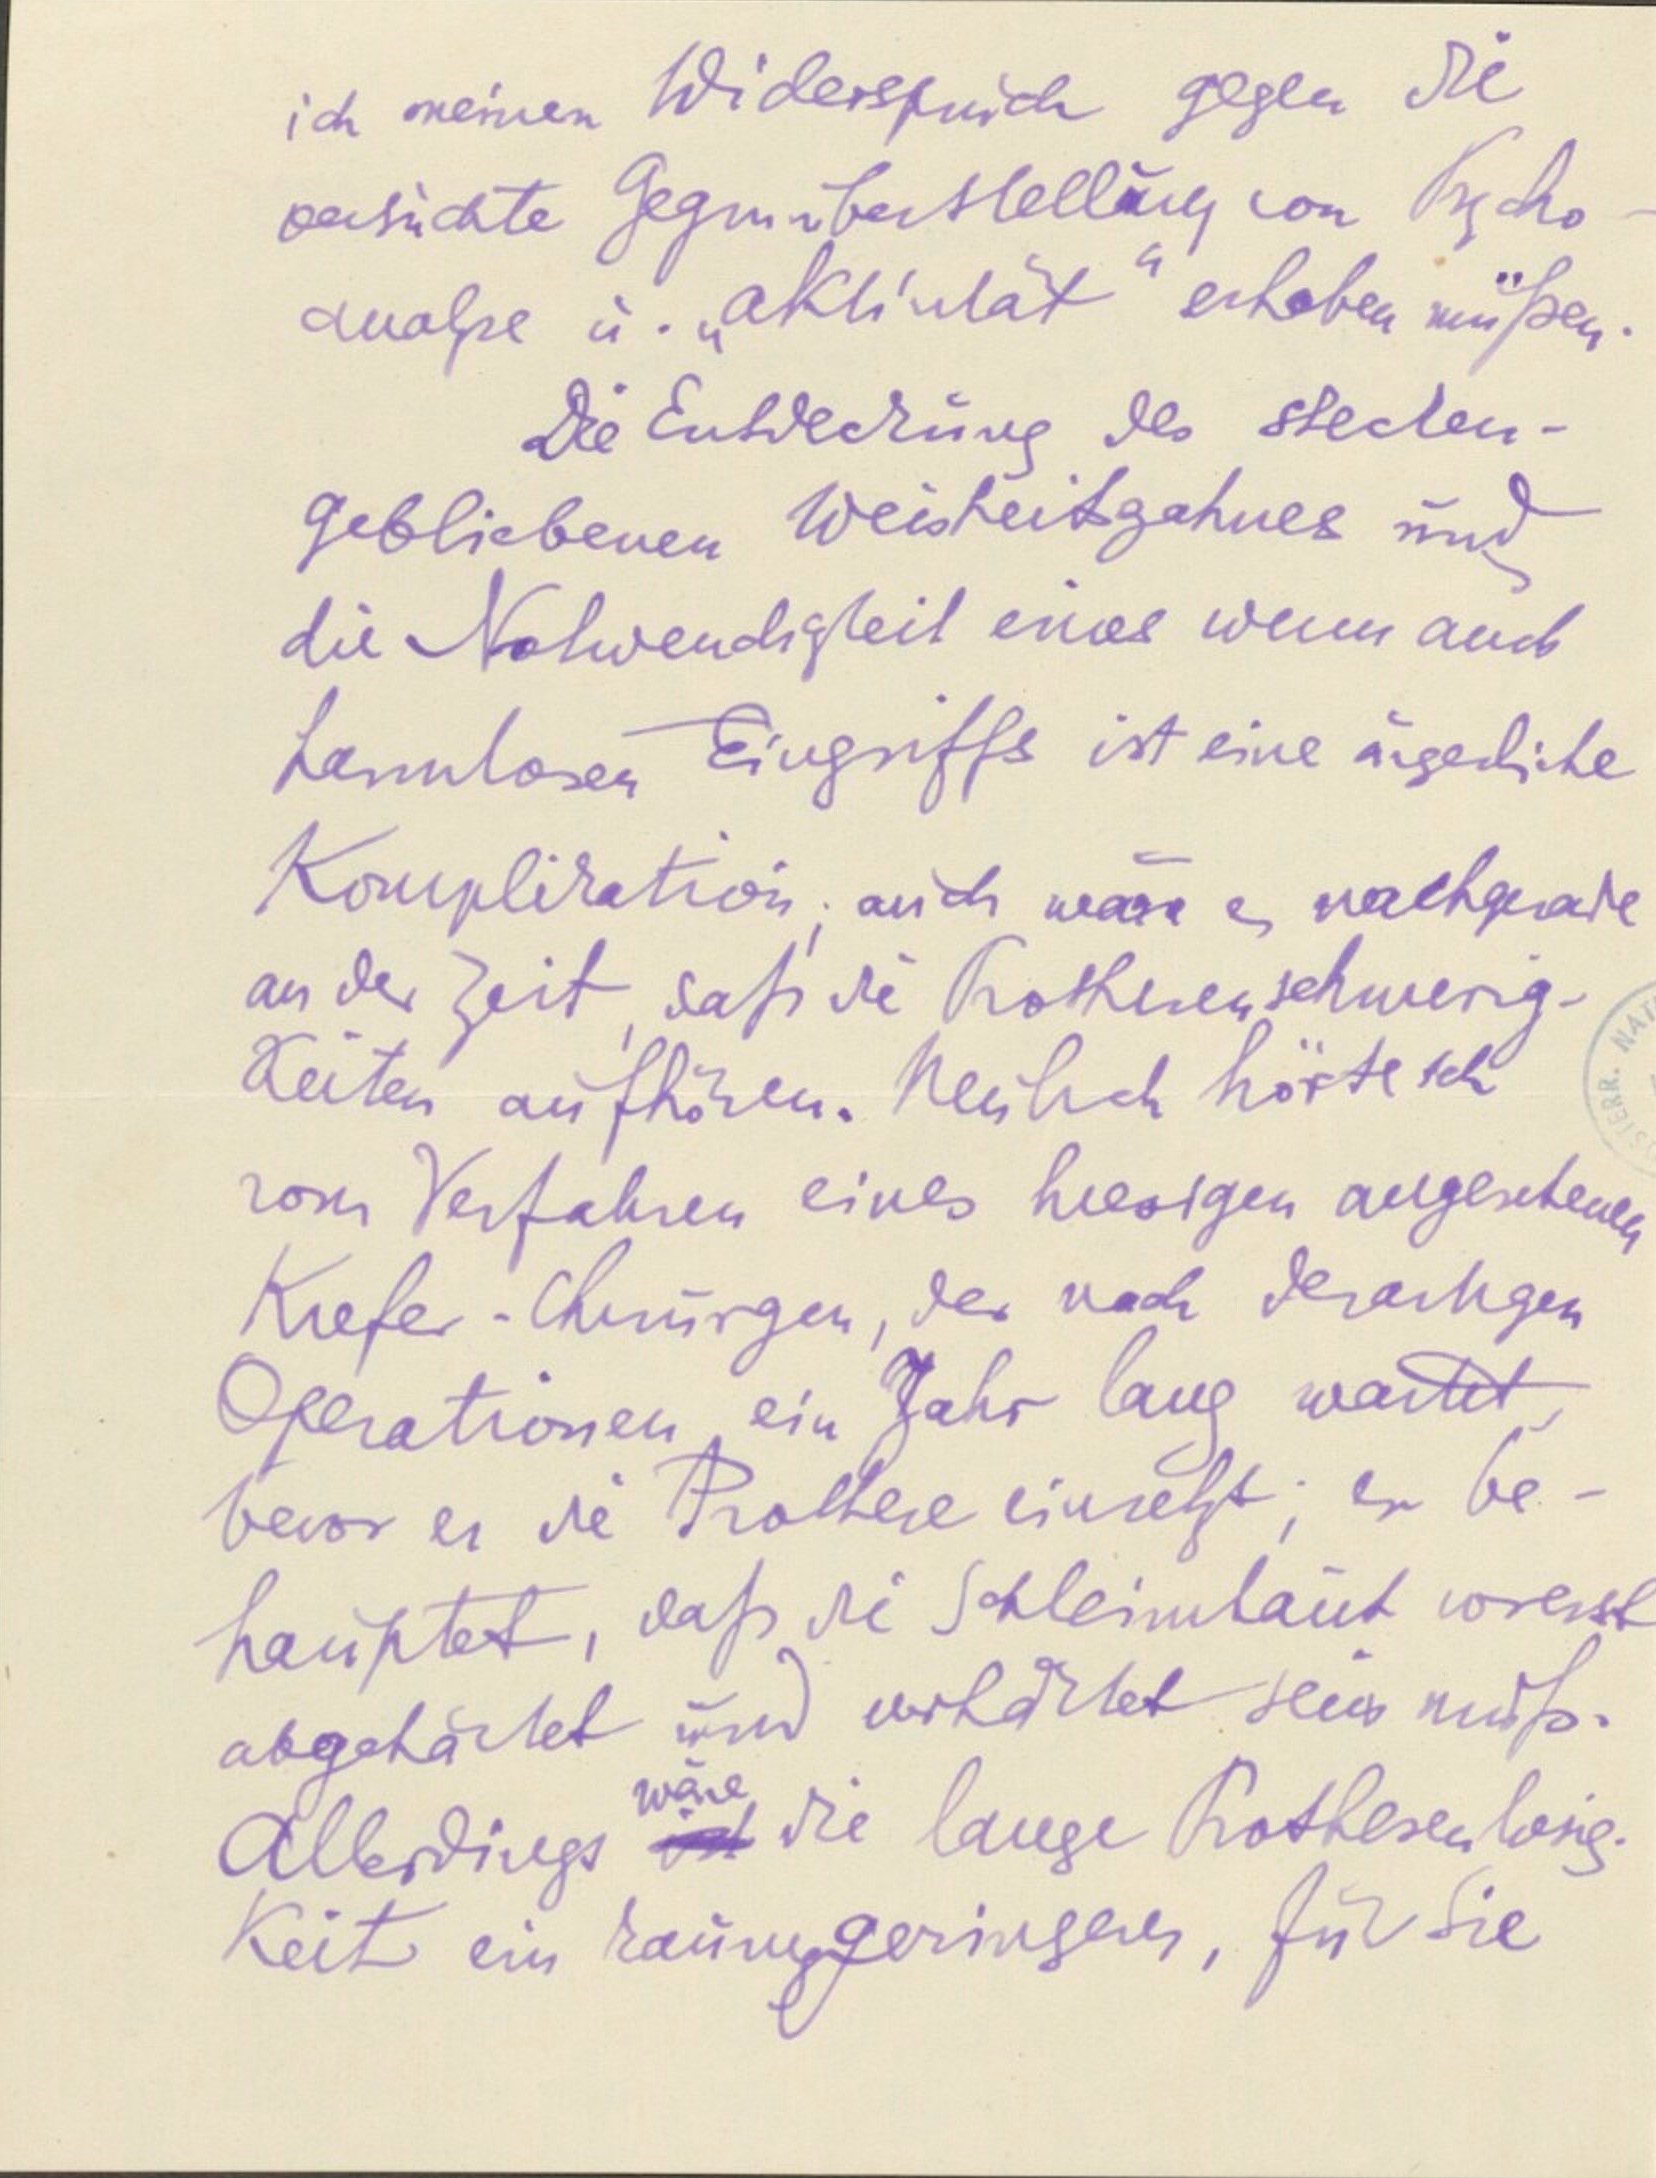 ich meinen Widerspruch gegen die
versuchte Gegenüberstellung von Psycho-
analyse u. „Aktivität“ erheben müßen.
Die Entdeckung des stecken-
gebliebenen Weisheitszahnes und
die Notwendigkeit eines wenn auch
harmlosen Eingriffs ist eine ärgerliche
Komplikation; auch wäre es nachgerade
an der Zeit, daß die Prothesenschwierig-
keiten aufhören. Neulich hörte ich
vom Verfahren eines hiesigen angesehenen
Kiefer-Chirurgen, der nach derartigen
Operationen ein Jahr lang wartet,
bevor er die Prothese einsetzt; er be-
hauptet, daß die Schleimhaut vorerst
abgehärtet und verhärtet sein muß.
wäre
Allerdings ist die lange Prothesenlosig-
keit ein kaum geringeres, für Sie
ÖSTERR. NAT